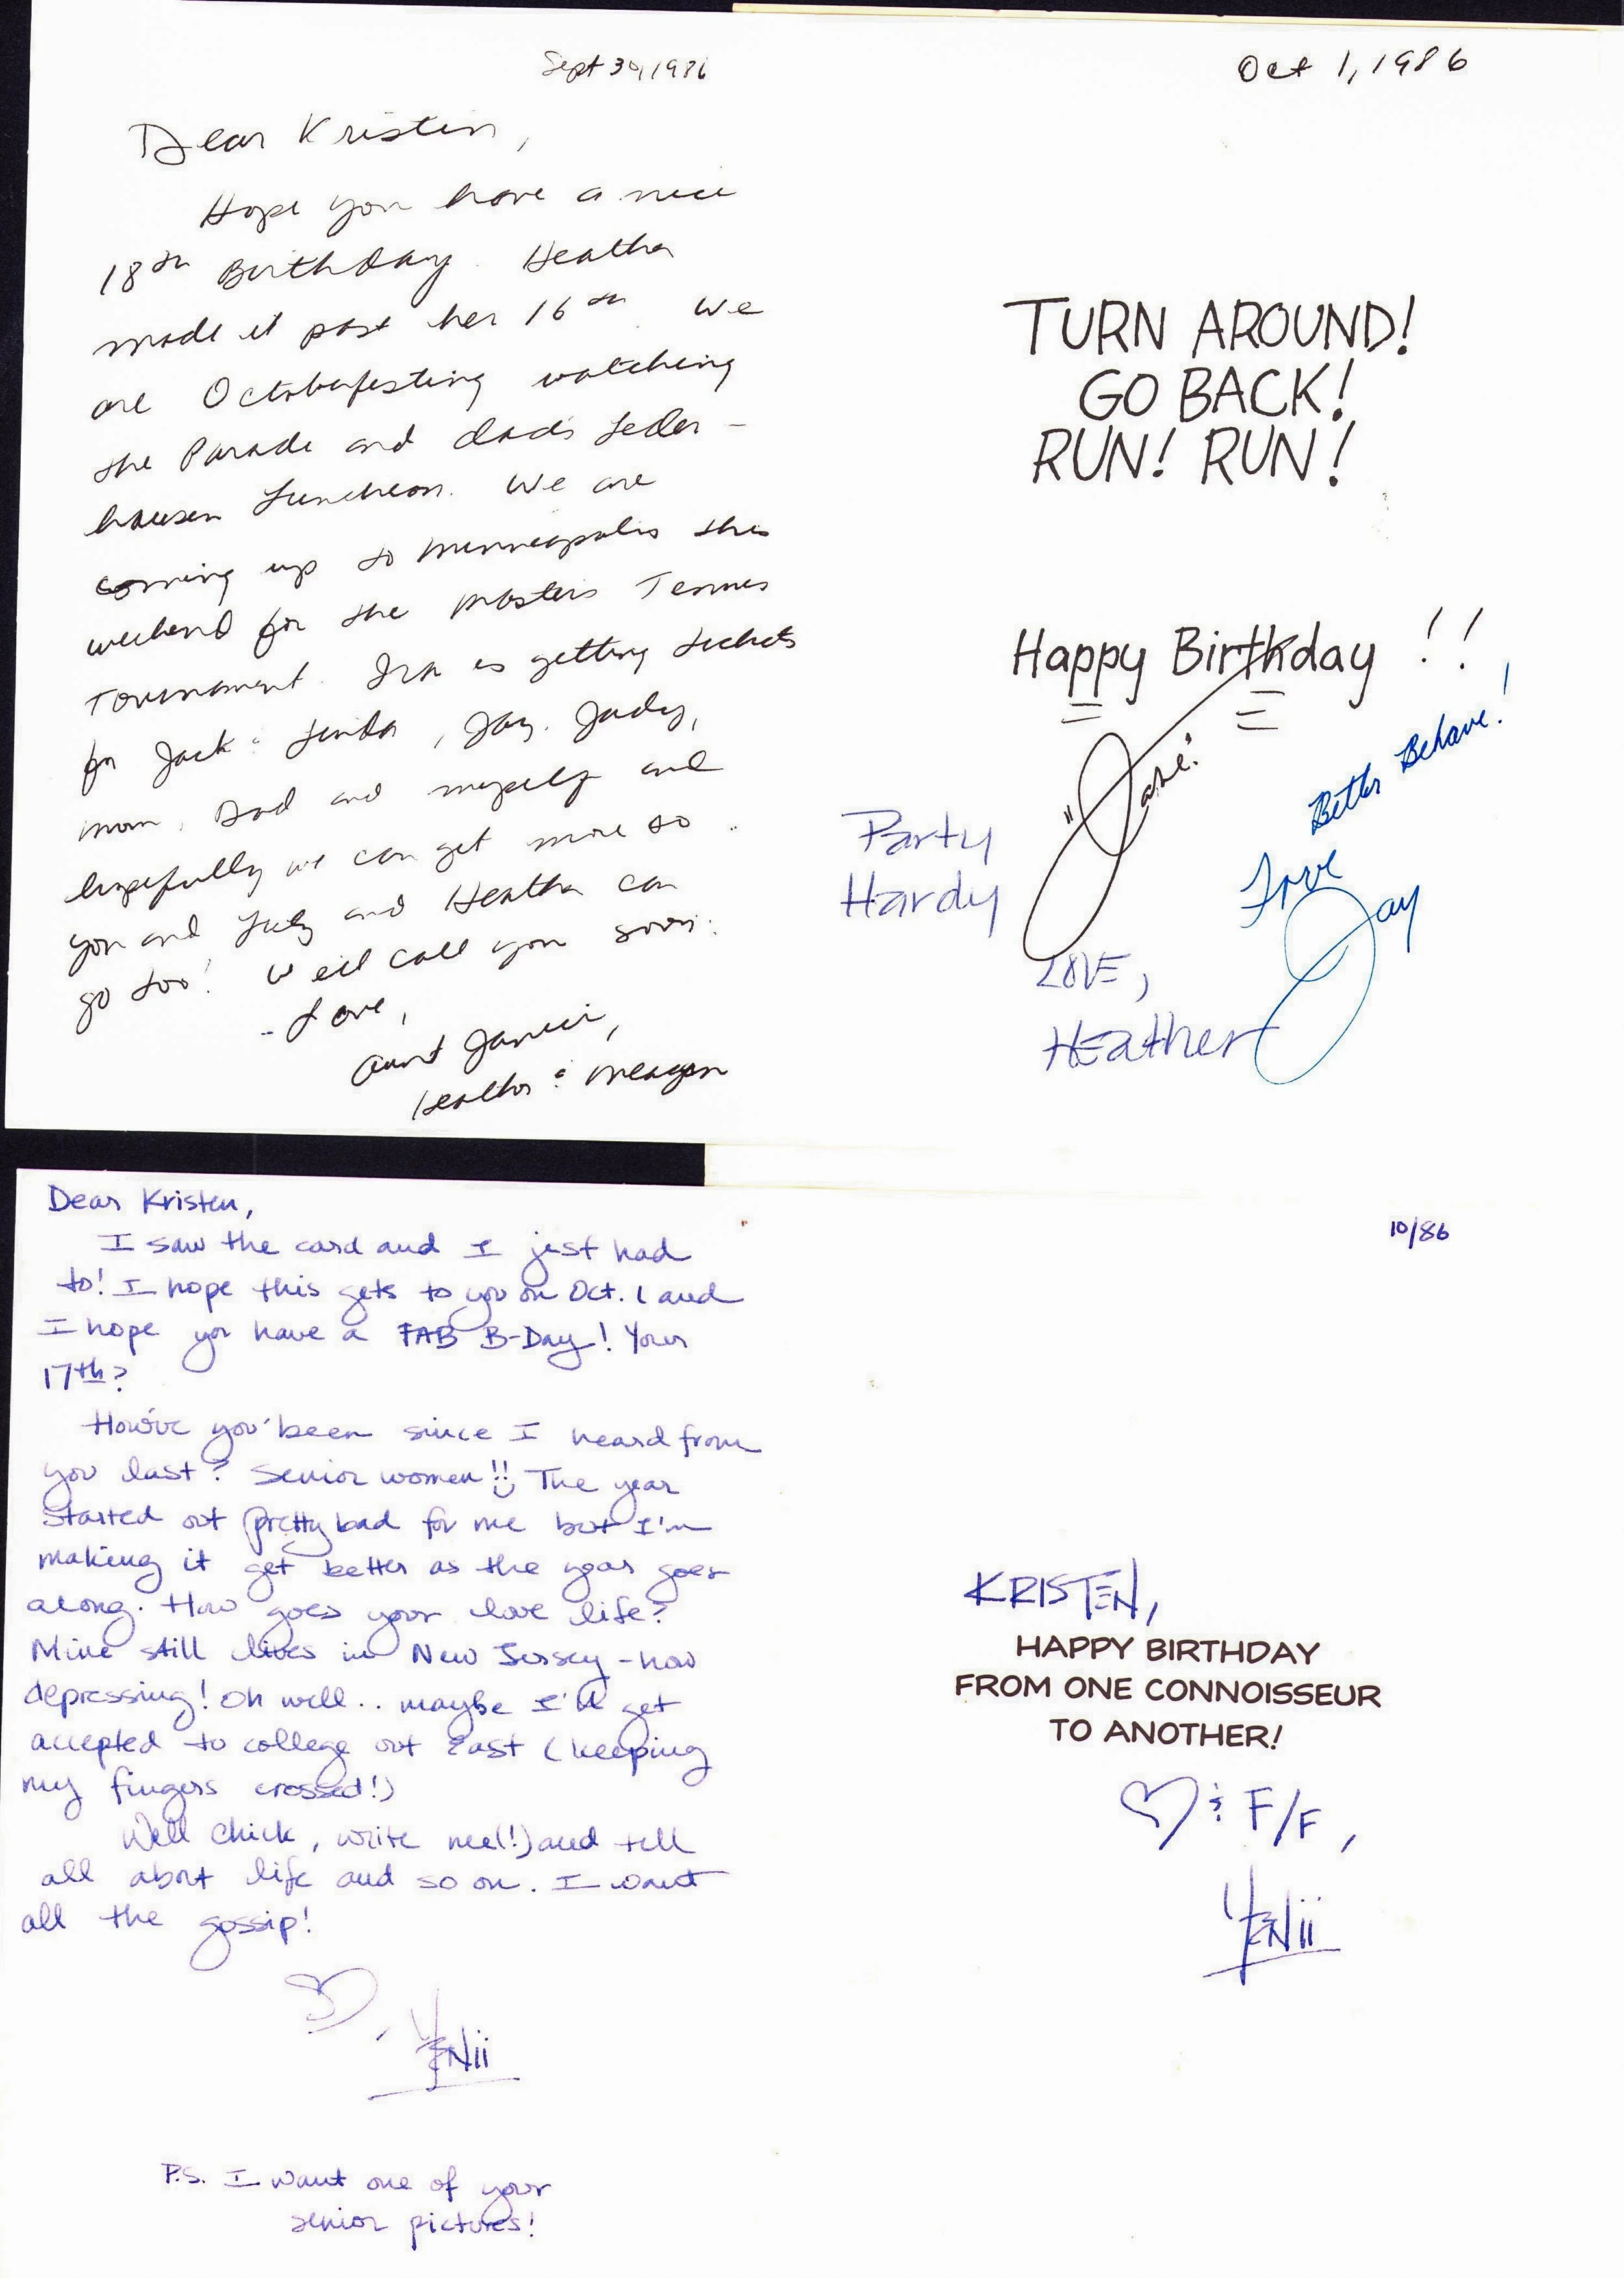 Sept 30, 1986
Dear Kristen,
Hope you have a nice
18th Birthday. Heather
made it past her 16th. We
are Octoberfesting watching
the Parade and dad's Leder-
hausen Luncheon. We are
coming up to Minneapolis this
weekend for the Masters Tennis
Tournament. Ira is getting tickets
for Jack & Linda, Jay, Judy,
mom, Dad and myself and
hopefully we can get more so
you and and Heather can
go too! We'll call you soon.
- Love,
Aunt Janice,
Heather & Meagan
Oct 1, 1986
TURN AROUND!
GO BACK!
RUN! RUN!
Happy Birthday !!
"Jane."
Better Behave!
Love
Jay
Party
Hardy
LOVE,
HEather
Dear Kristen,
I saw the card and I just had
to! I hope this gets to you on Oct. 1 and
I hope you have a FAB B-Day! Your
17th?
How've you been since I heard from
you last? Senior women!! The year
started out pretty bad for me but I'm
making it get better as the year goes
along. How goes your love life?
Mine still lives in New Jersey - how
depressing! Oh well.. maybe I'll get
accepted to college out East (keeping
my fingers crossed!)
Well chick, write me(!) and tell
all about life and so on. I want
all the gossip!
♡, YENii
P.S. I want one of your
senior pictures!
10/86
KRISTEN,
HAPPY BIRTHDAY
FROM ONE CONNOISSEUR
TO ANOTHER!
♡ & F/F,
YENii